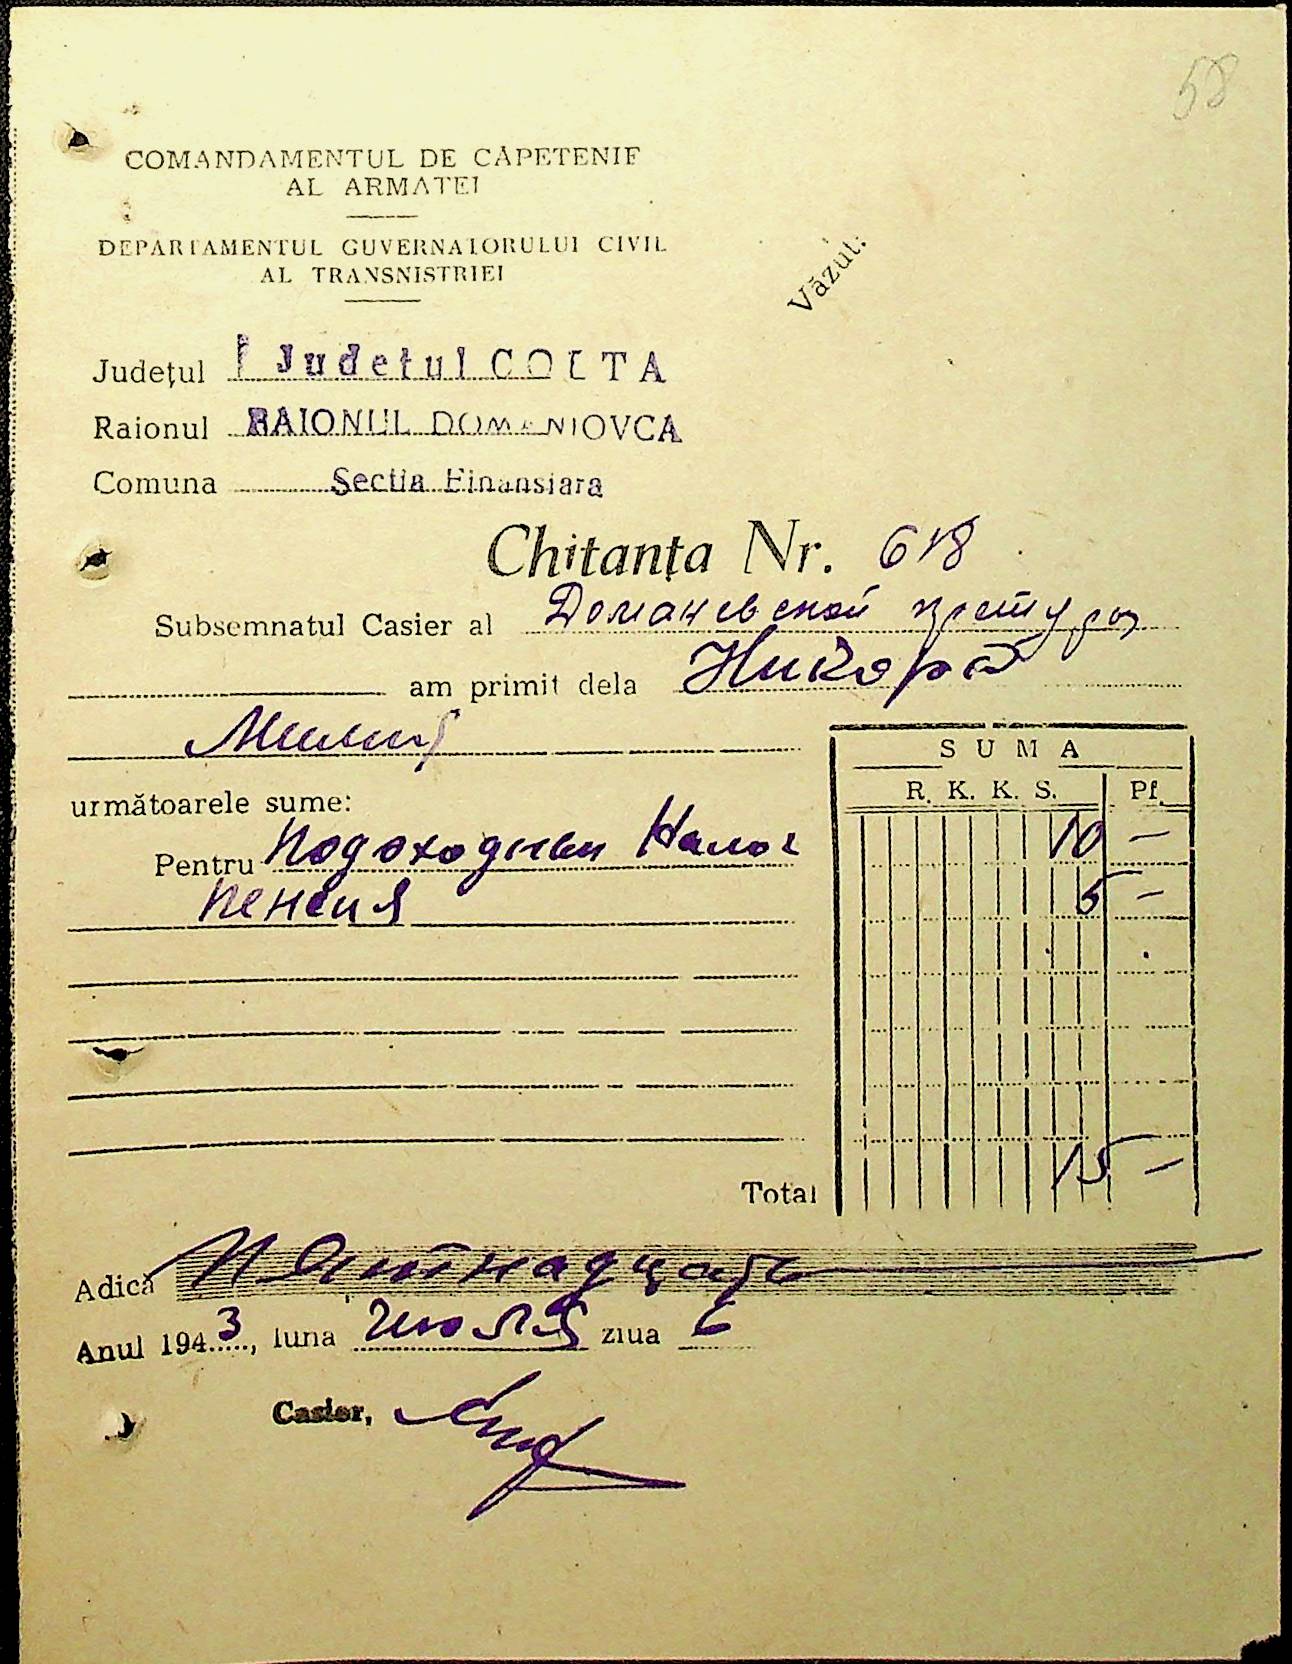 58
COMANDAMENTUL DE CĂPETENIE
AL ARMATEI
DEPARTAMENTUL GUVERNATORULUI CIVIL
AL TRANSNISTRIEI
Văzut:
Județul Judetul GOLTA
Raionul RAIONUL DOMANIOVCA
Comuna Sectia Finansiara
Chitanța Nr. 618
Subsemnatul Casier al Доманевской претуры
am primit dela Никора
următoarele sume:
SUMA
R. K. K. S. Pf.
Pentru Подоходный Налог 10 —
Пенсия 5 —
Total 15 —
Adică Пятнадцать
Anul 1943, luna Июля ziua 6
Casier,